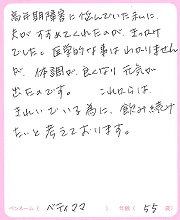 高年期障害に悩んでいた私に、
夫がすすめてくれたのが、きっかけ
でした。医学的な事はわかりません
が、体調が良くなり元気が
出たのです。 これからは
きれいでいる為に、飲み続け
たいと考えております。
ペンネーム( ベティママ ) 年齢( 55 歳)